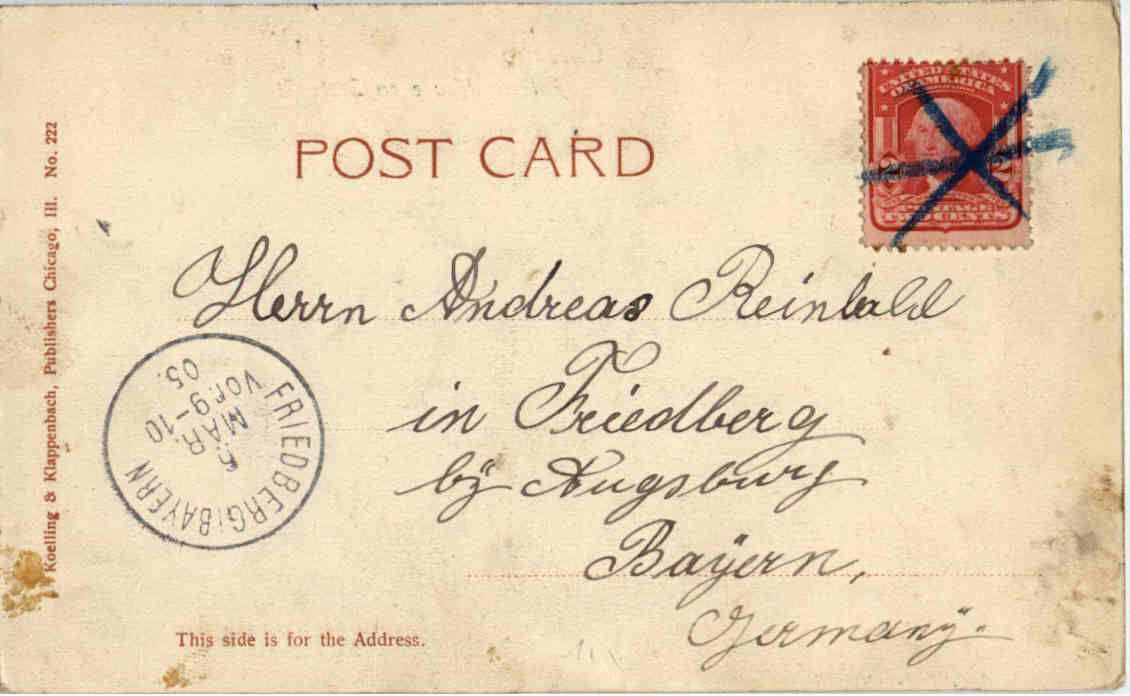 POST CARD
UNITED STATES
OF AMERICA
2 2
TWO CENTS
Herrn Andreas Reinbold
in Friedberg
bÿ Augsburg
Baÿern,
Germanÿ.
FRIEDBERG(BAYERN
MAR.
Vor.9-10
05.
This side is for the Address.
Koelling & Klappenbach, Publishers Chicago, Ill. No. 222